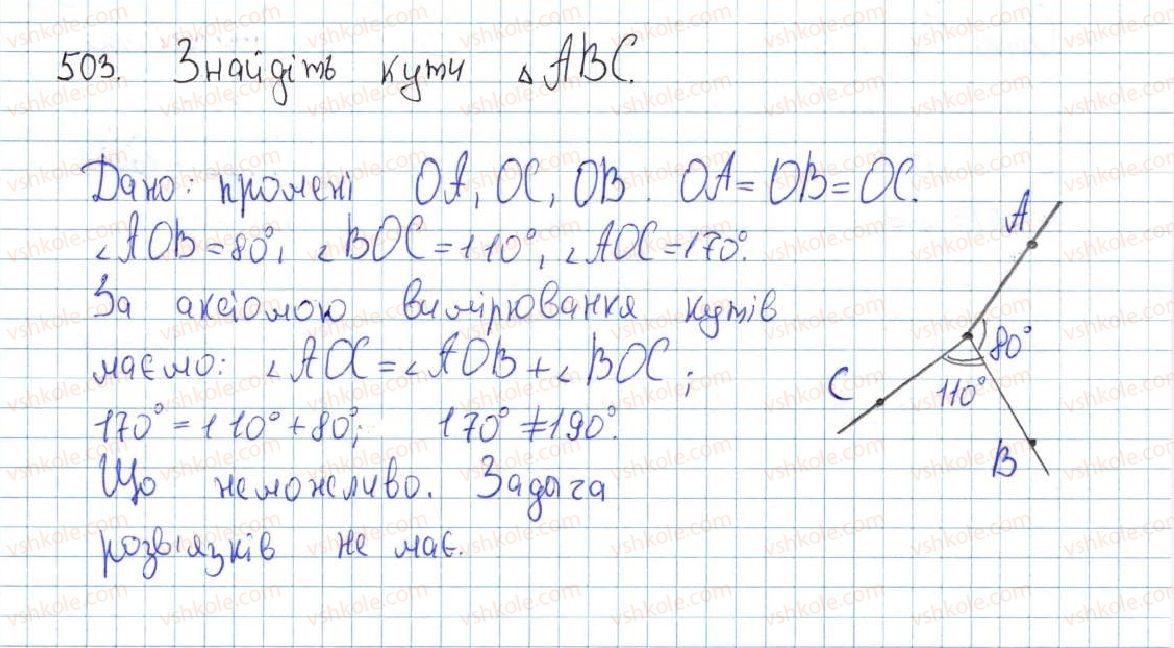 503. Знайдіть кути △ABC.
Дано: промені OA, OC, OB. OA = OB = OC.
∠AOB = 80°, ∠BOC = 110°, ∠AOC = 170°.
За аксіомою вимірювання кутів
маємо: ∠AOC = ∠AOB + ∠BOC;
170° = 110° + 80°; 170° ≠ 190°.
Що неможливо. Задача
розв'язків не має.
A
80°
C
110°
B
vshkole.com